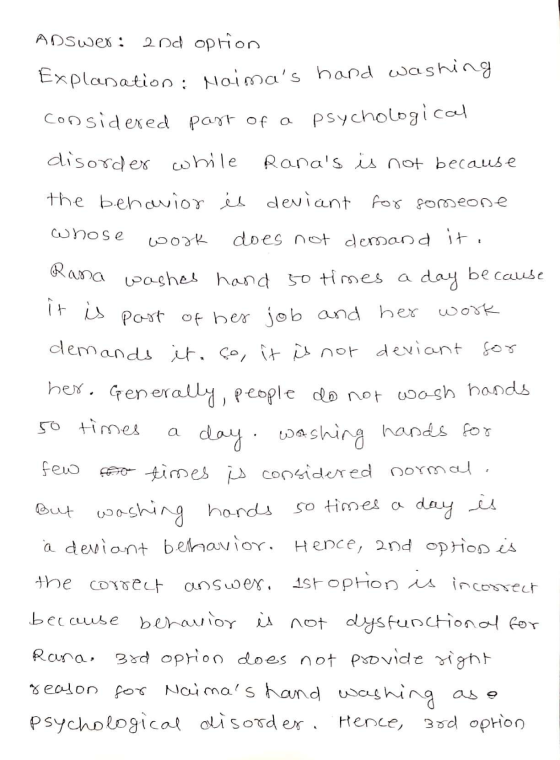 Answer: 2nd option
Explanation: Naima's hand washing
considered part of a psychological
disorder while Rana's is not because
the behavior is deviant for someone
whose work does not demand it.
Rana washes hand 50 times a day because
it is part of her job and her work
demands it. So, it is not deviant for
her. Generally, people do not wash hands
50 times a day. washing hands for
few times is considered normal.
But washing hands 50 times a day is
a deviant behavior. Hence, 2nd option is
the correct answer. 1st option is incorrect
because behavior is not dysfunctional for
Rana. 3rd option does not provide right
reason for Naima's hand washing as
psychological disorder. Hence, 3rd option